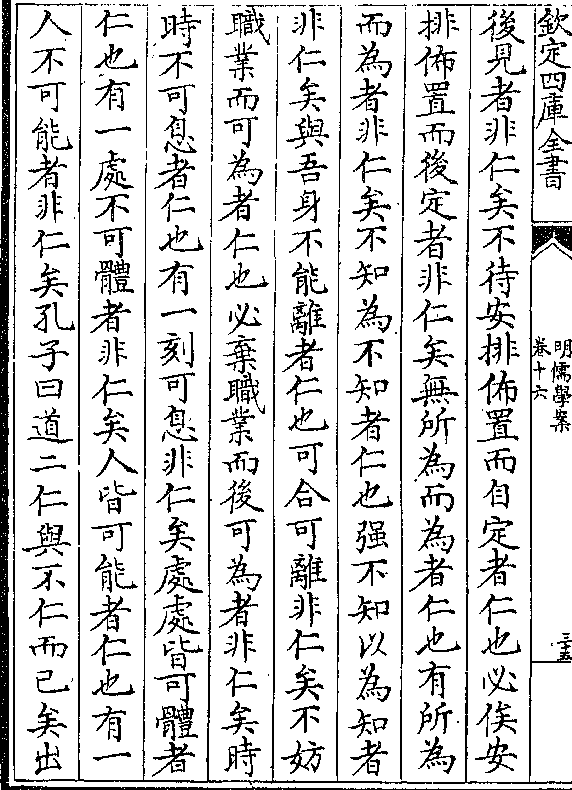 欽定四庫全書
明儒學案
卷十六
三十五
後見者非仁矣不待安排佈置而自定者仁也必俟安
排佈置而後定者非仁矣無所為而為者仁也有所為
而為者非仁矣不知為不知者仁也强不知以為知者
非仁矣與吾身不能離者仁也可合可離非仁矣不妨
職業而可為者仁也必棄職業而後可為者非仁矣時
時不可息者仁也有一刻可息非仁矣處處皆可體者
仁也有一處不可體者非仁矣人皆可能者仁也有一
人不可能者非仁矣孔子曰道二仁與不仁而已矣出